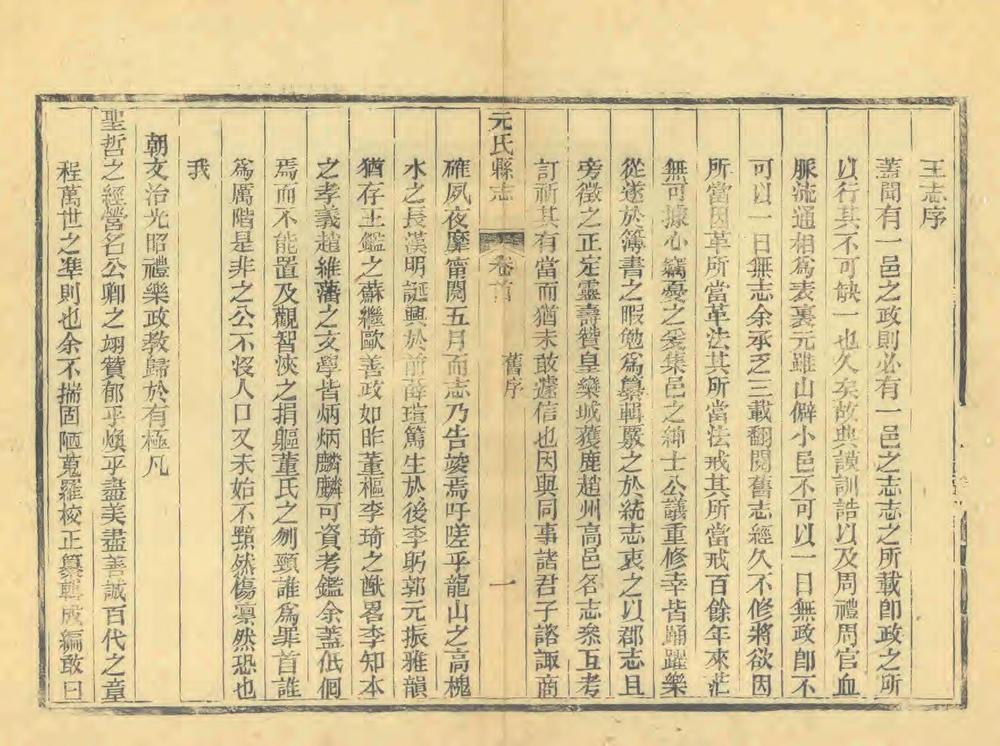 王志序
蓋聞有一邑之政則必有一邑之志志之所載卽政之所
以行其不可缺一也久矣故典謨訓誥以及周禮周官血
脈流通相爲表裏元雖山僻小邑不可以一日無政卽不
可以一日無志余承乏三載翻閱舊志經久不修將欲因
所當因革所當革法其所當法戒其所當戒百餘年來茫
無可據心竊憂之爰集邑之紳士公議重修幸皆踊躍樂
從遂於簿書之暇勉爲纂輯嚴之於統志衷之以郡志且
旁徵之正定靈壽贊皇欒城獲鹿趙州高邑各志叅互考
訂祈其有當而猶未敢遽信也因與同事諸君子諮諏商
元氏縣志 卷首 舊序 一
確夙夜靡甯閱五月而志乃告竣焉吁嗟乎龍山之高槐
水之長漢明誕興於前薛瑄篤生於後李躬郭元振雅韻
猶存王鑑之蘇繼歐善政如昨董樞李琦之猷畧李知本
之孝義趙維藩之文學皆炳炳麟麟可資考鑑余蓋低徊
焉而不能置及觀智浹之捐軀董氏之刎頸誰爲罪首誰
爲厲階是非之公不沒人口又未始不黯然傷凛然恐也
我
朝文治光昭禮樂政敎歸於有極凡
聖哲之經營名公卿之翊贊郁乎煥乎盡美盡善誠百代之章
程萬世之準則也余不揣固陋蒐羅校正纂輯成編敢曰